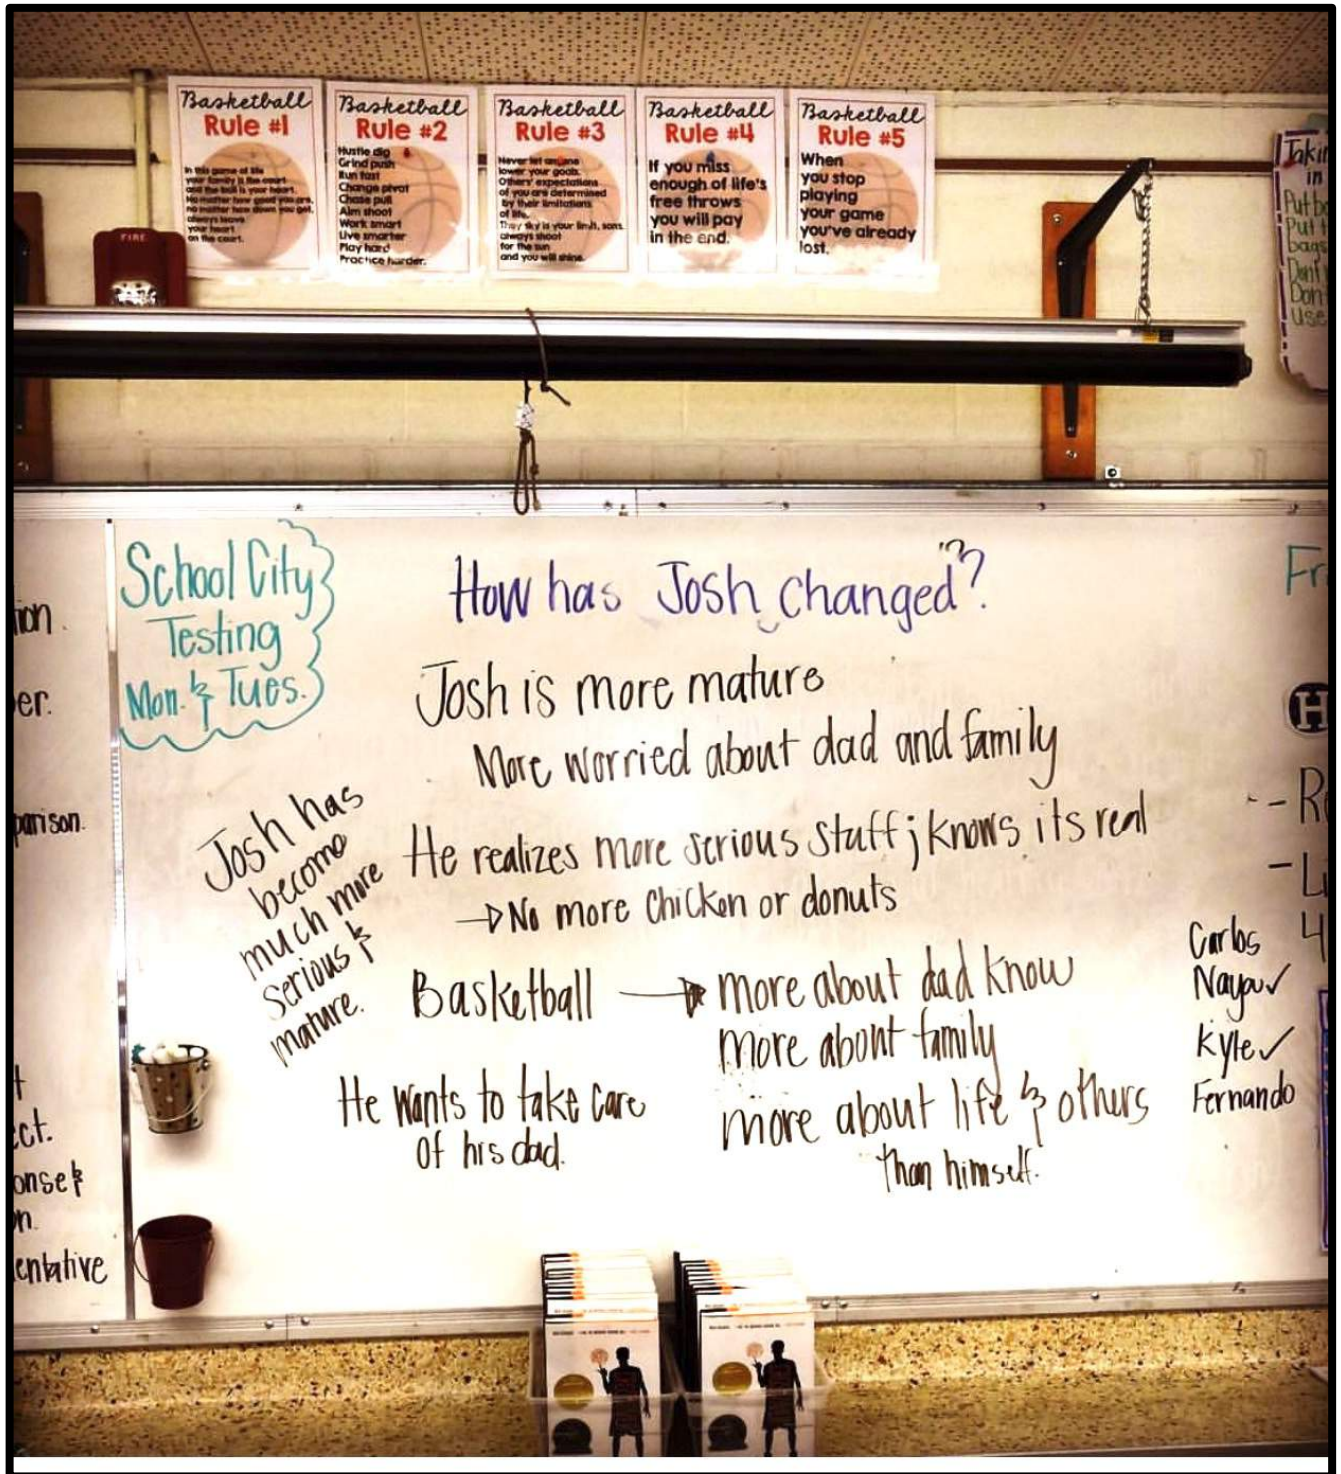 Basketball
Rule #1
In this game of life
your family is the court
and the ball is your heart.
No matter how good you are,
no matter how down you get,
always leave
your heart
on the court.
Basketball
Rule #2
Hustle dig
Grind push
Run fast
Change pivot
Chase pull
Aim shoot
Work smart
Live smarter
Play hard
Practice harder.
Basketball
Rule #3
Never let anyone
lower your goals.
Others' expectations
of you are determined
by their limitations
of life.
They sky is your limit, sons.
always shoot
for the sun
and you will shine.
Basketball
Rule #4
If you miss
enough of life's
free throws
you will pay
in the end.
Basketball
Rule #5
When
you stop
playing
your game
you've already
lost.
FIRE
in
bags
Don't
Don't
use
School City
Testing
Mon. & Tues.
How has Josh changed?
Josh is more mature
More worried about dad and family
He realizes more serious stuff; knows its real
→ No more chicken or donuts
Josh has
become
much more
serious &
mature.
Basketball → more about dad know
more about family
more about life & others
than himself.
He wants to take care
of his dad.
Carlos
Kyle ✓
Fernando
er.
H